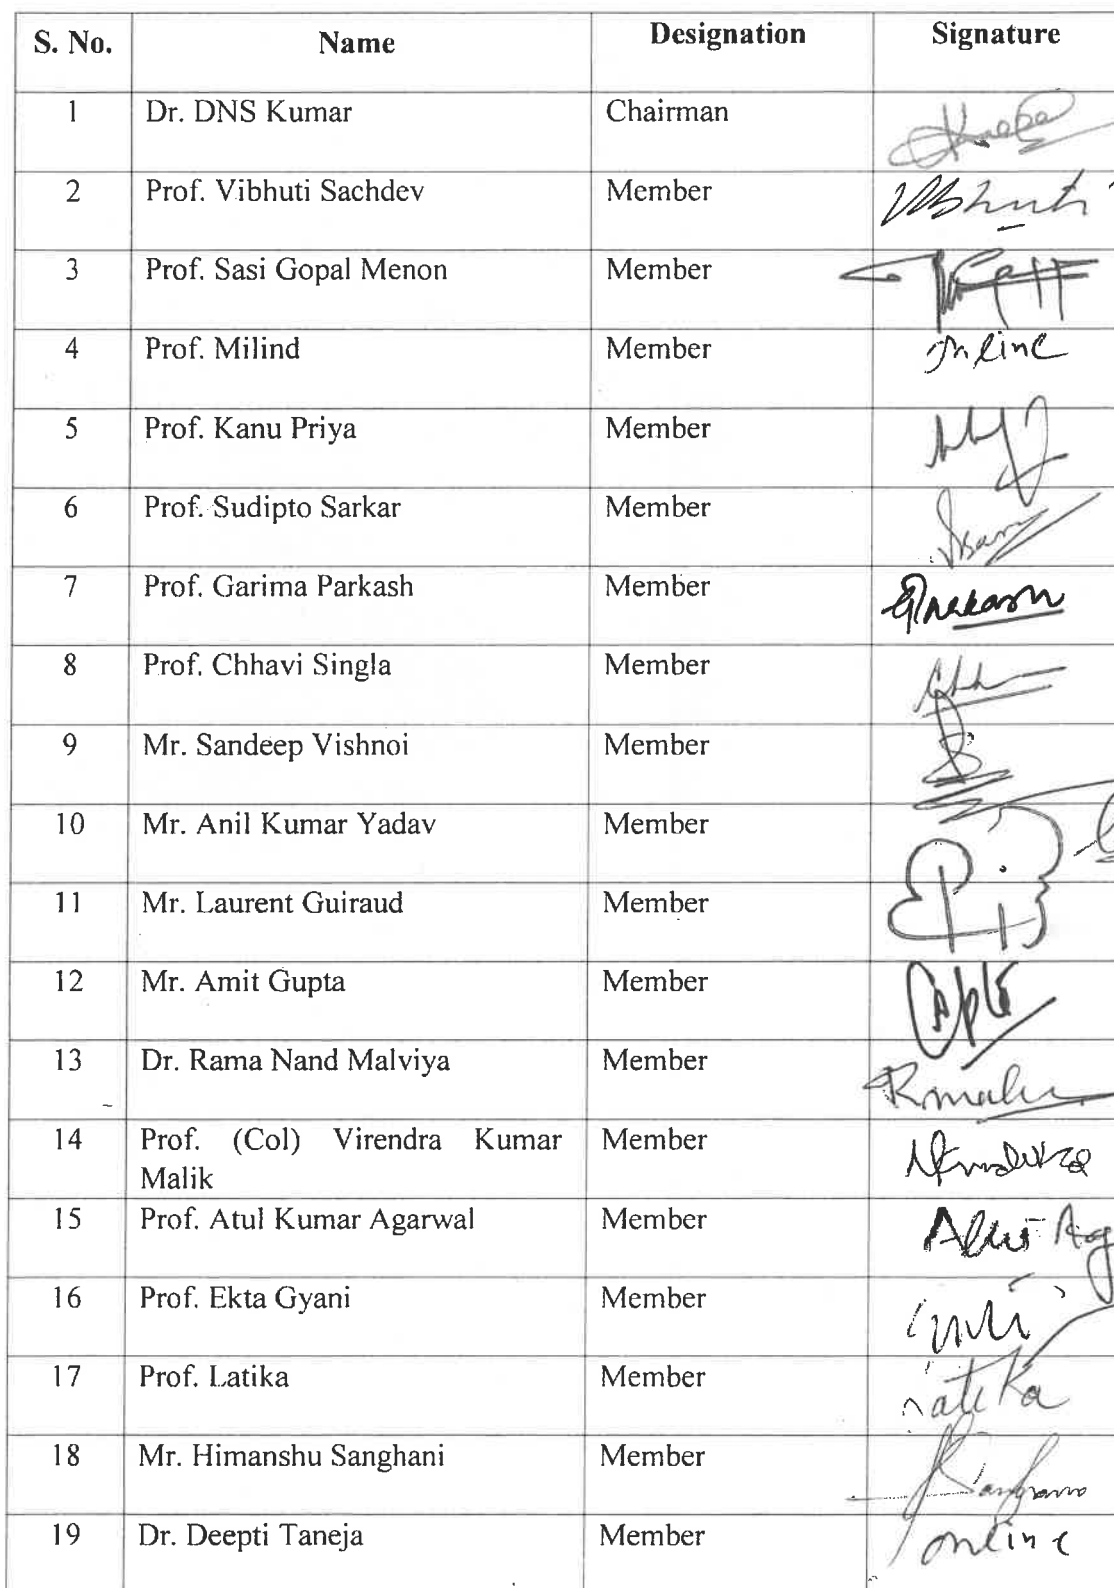 S. No. Name Designation Signature
1 Dr. DNS Kumar Chairman
2 Prof. Vibhuti Sachdev Member Vibhuti
3 Prof. Sasi Gopal Menon Member
4 Prof. Milind Member Online
5 Prof. Kanu Priya Member
6 Prof. Sudipto Sarkar Member
7 Prof. Garima Parkash Member
8 Prof. Chhavi Singla Member
9 Mr. Sandeep Vishnoi Member
10 Mr. Anil Kumar Yadav Member
11 Mr. Laurent Guiraud Member
12 Mr. Amit Gupta Member
13 Dr. Rama Nand Malviya Member
14 Prof. (Col) Virendra Kumar Member
Malik
15 Prof. Atul Kumar Agarwal Member
16 Prof. Ekta Gyani Member
17 Prof. Latika Member Latika
18 Mr. Himanshu Sanghani Member
19 Dr. Deepti Taneja Member online